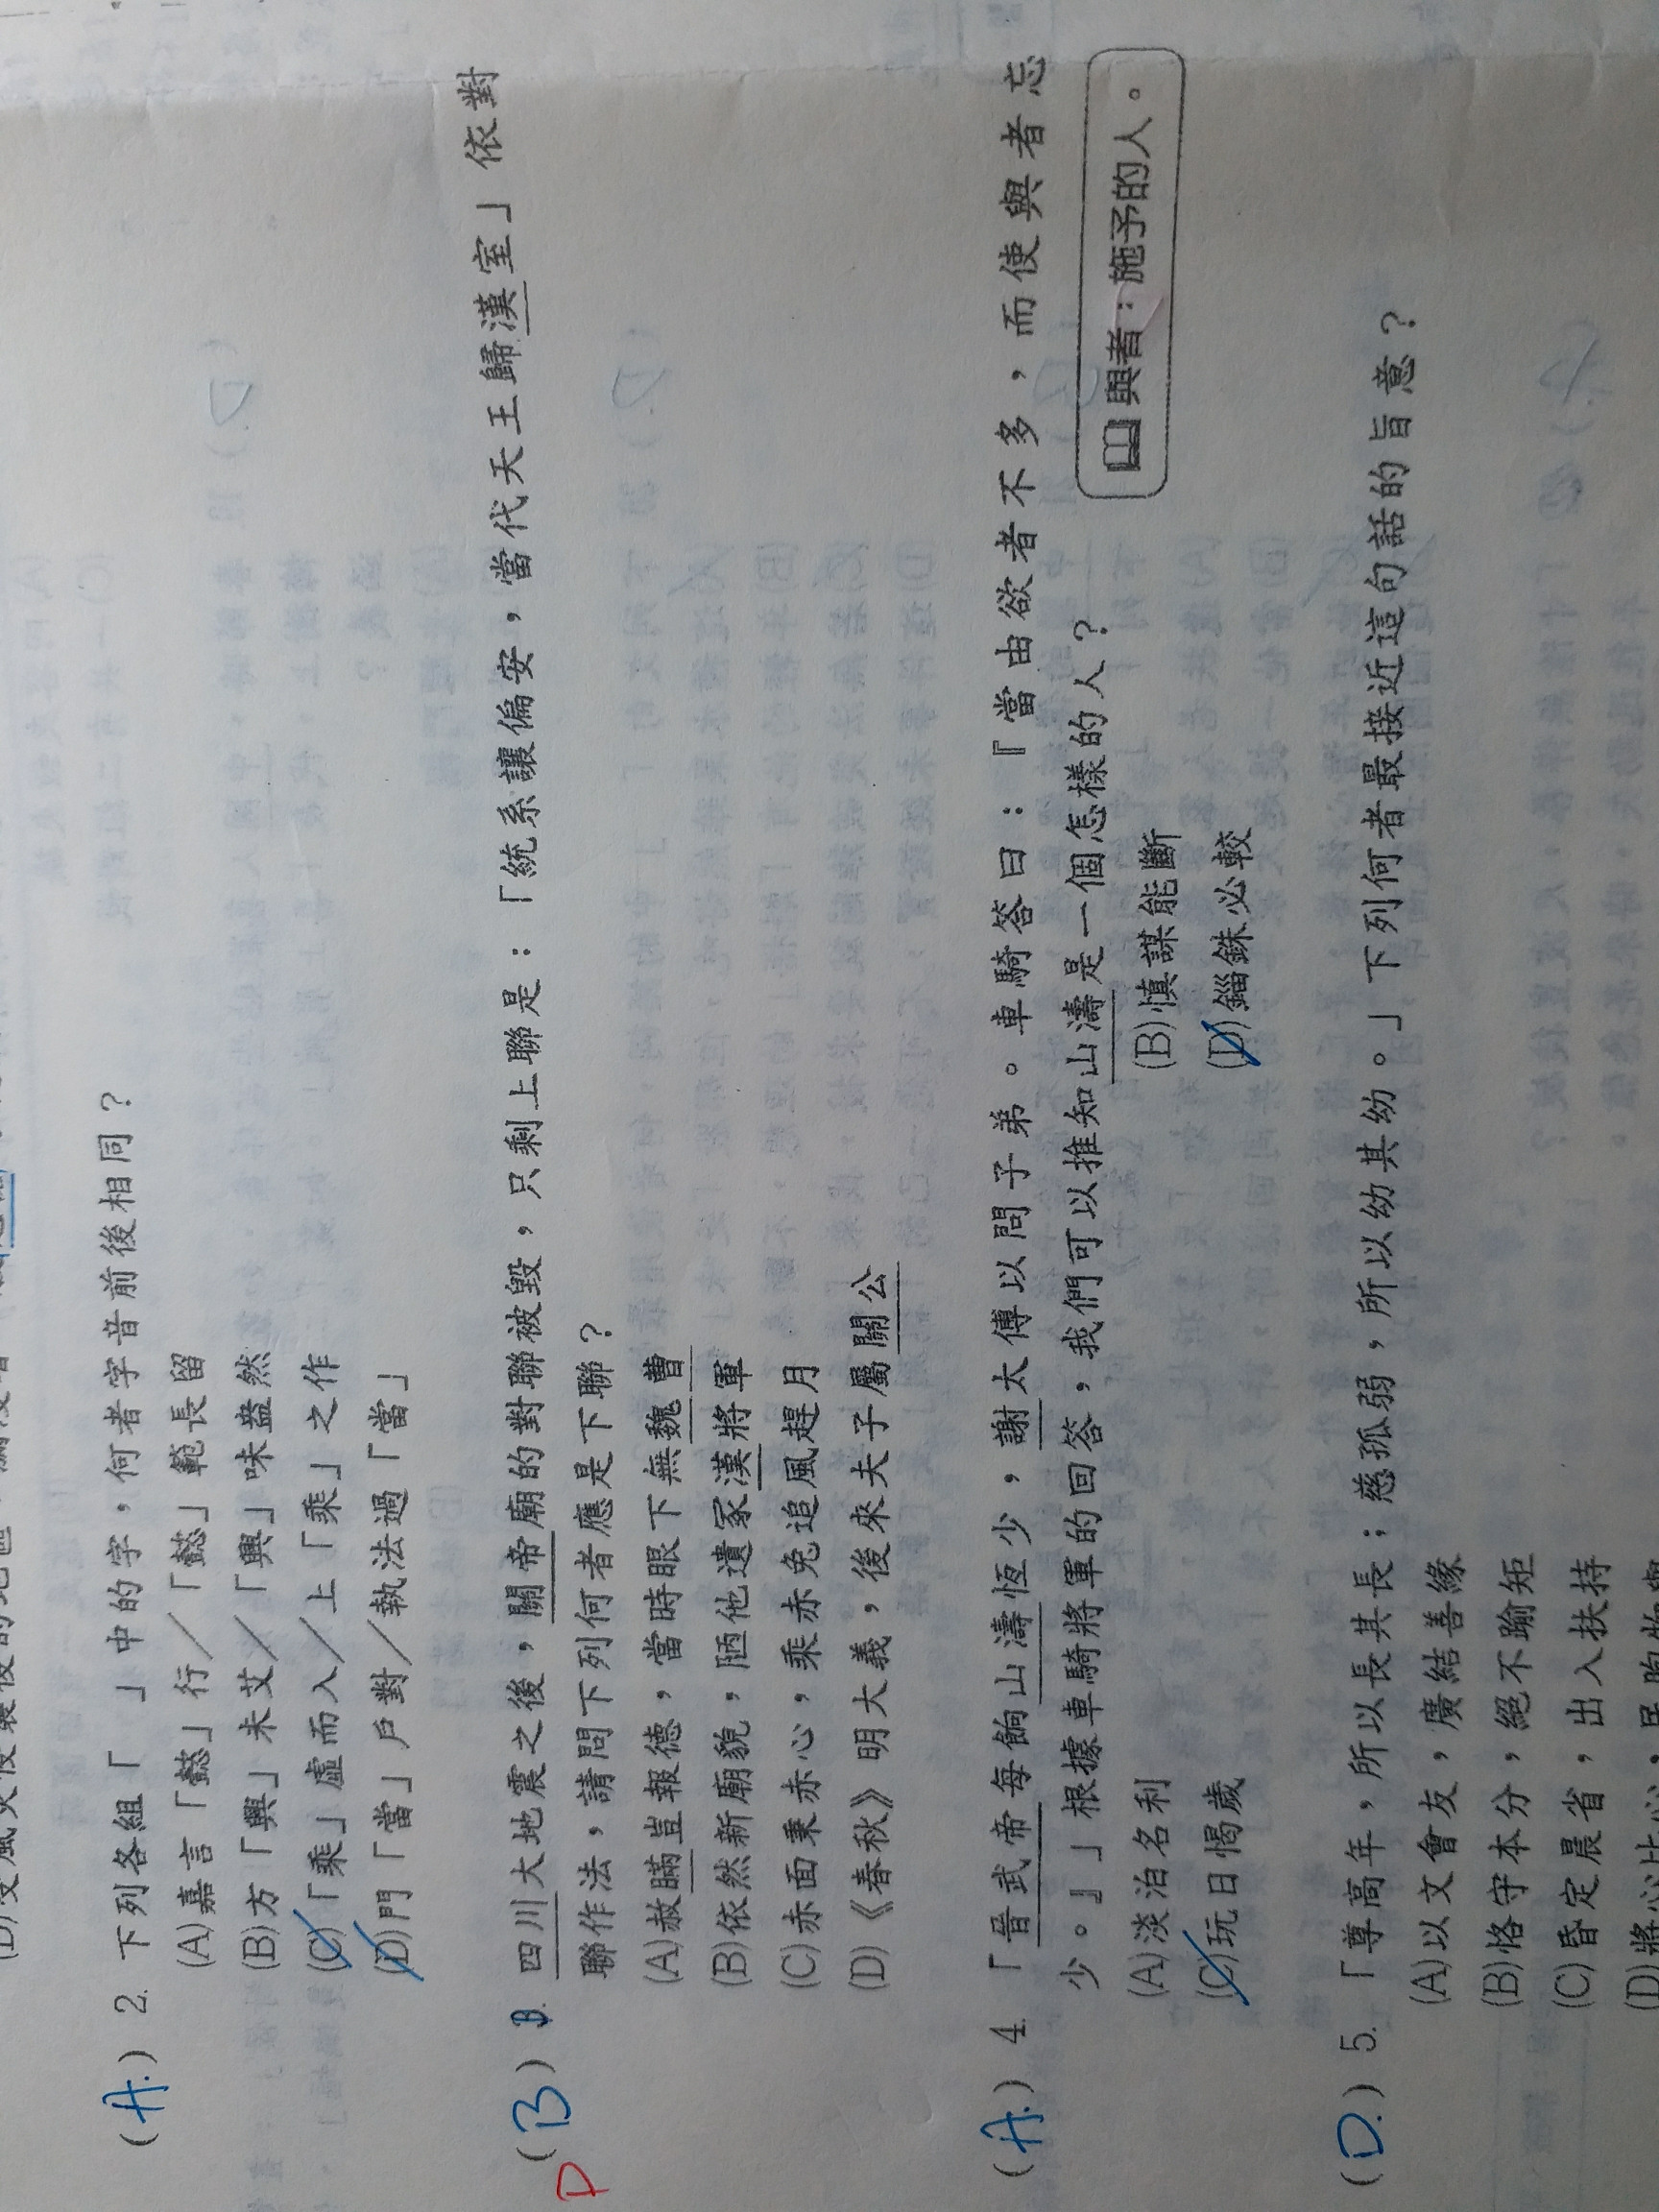 (A.) 2. 下列各組「 」中的字，何者字音前後相同？
(A)嘉言「懿」行／「懿」範長留
(B)方「興」未艾／「興」味盎然
(C)「乘」虛而入／上「乘」之作
(D)門「當」戶對／執法過「當」
D (B) 3. 四川大地震之後，關帝廟的對聯被毀，只剩上聯是：「統系讓偏安，當代天王歸漢室」依對
聯作法，請問下列何者應是下聯？
(A)赦瞞豈報德，當時眼下無魏曹
(B)依然新廟貌，陋他遺冢漢將軍
(C)赤面秉赤心，乘赤兔追風趕月
(D)《春秋》明大義，後來夫子屬關公
(A.) 4. 「晉武帝每餉山濤恆少，謝太傅以問子弟。車騎答曰：『當由欲者不多，而使與者忘
少。』」根據車騎將軍的回答，我們可以推知山濤是一個怎樣的人？
與者：施予的人。
(A)淡泊名利 (B)慎謀能斷
(C)玩日愒歲 (D)錙銖必較
(D.) 5. 「尊高年，所以長其長；慈孤弱，所以幼其幼。」下列何者最接近這句話的旨意？
(A)以文會友，廣結善緣
(B)恪守本分，絕不踰矩
(C)昏定晨省，出入扶持
(D)將心比心，